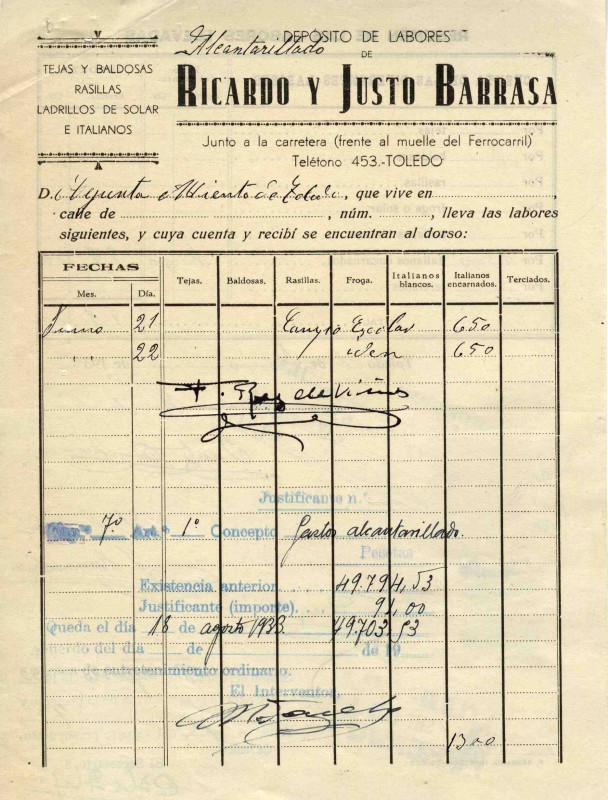 Alcantarillado
DEPÓSITO DE LABORES
DE
RICARDO Y JUSTO BARRASA
TEJAS Y BALDOSAS
RASILLAS
LADRILLOS DE SOLAR
E ITALIANOS
Junto a la carretera (frente al muelle del Ferrocarril)
Teléfono 453.-TOLEDO
D. Ayuntamiento de Toledo, que vive en
calle de , núm. , lleva las labores
siguientes, y cuya cuenta y recibí se encuentran al dorso:
FECHAS
Mes. Día. Tejas. Baldosas. Rasillas. Froga. Italianos blancos. Italianos encarnados. Terciados.
Junio 21 Campo Escolar 650
22 iden 650
Justificante n.º
7.º Art.º 1º Concepto Gastos alcantarillado.
Pesetas
Existencia anterior 49.794,53
Justificante (importe) 91,00
Queda el día 18 de agosto 1933. 49.703,53
Acuerdo del día de de 19
de entretenimiento ordinario.
El Interventor,
1300